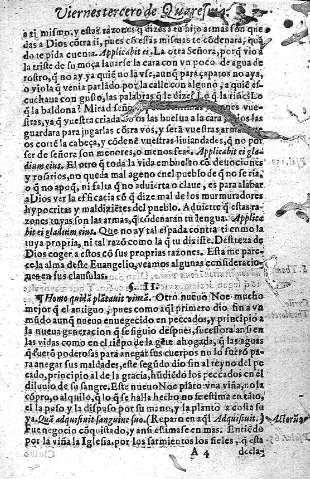 Viernes tercero de Quaresma.
a si mismo, y estas razones q̃ dizes a tu hijo armas son que
das a Dios cõtra ti, pues cõ estas mismas te cõdenará, quã
do te pida quenta. Applicabit ei. La otra Señora, porq̃ vio a
la triste de su moça lauarse la cara con vn poco de agua de
rostro, q̃ no ay ya quiẽ no la vse, aunq̃ para çapatos no aya,
o viola q̃ venia parlado por la calle con alguno, a quiẽ es-
cuchaua con gusto, las palabras q̃ le dize? Lo q̃ la riñe? Lo
q̃ la baldona? Mirad señora
tas, ya q̃ vuestra criada no os las buelua a la cara, Dios las
guardara para jugarlas cõtra vos, y será vuestras armas
os corte la cabeça, y cõdene vuestras liuiandades, q̃ no por
ser de señora son menores, o menos feas. Applicabit ei gla-
dium eius. El otro q̃ toda la vida embuelto cõ deuociones
y rosarios, no queda mal ageno enel pueblo de q̃ no se ria,
o q̃ no apoq̃, ni falta q̃ no aduierta o claue, es para alabar
a Dios ver la efficacia cõ q̃ dize mal de los murmuradores
hypocritas y maldiziẽtes del pueblo. Aduierte q̃ essas ra-
zones tuyas son las armas, q̃ cõdenarán tu lengua. Applica
bit ei gladium eius. Que no ay tal espada contra ti como la
tuya propria, ni tal razõ como la q̃ tu diziste. Destreza de
Dios coger a estos cõ sus proprias razones. Esta me pare-
ce la alma deste Euangelio, veamos algunas consideratio-
nes en sus clausulas.
§. II.
¶ Homo quidã plãtauit vineã. Otro nueuo Noe mucho
mejor q̃ el antiguo, pues como aq̃l primero dio fin a vn
mũdo aunq̃ nueuo enuegecido en peccados, y principio a
la nueua generacion q̃ se siguio despues, sucessora ansi en
las vidas como en el tiẽpo de la gẽte ahogada, q̃ las aguas
q̃ fuerõ poderosas para anegar sus cuerpos no lo fuerõ pa-
ra anegar sus maldades, este segũdo dio fin al reyno del pe
cado, principio al de la gracia, hũdiẽdo los peccados en el
diluuio de su sangre. Este nueuo Noe plãto vna viña, no la
cõpro, o alquilo, q̃ lo q̃ se halla hecho no se estima en tãto,
el la puso y la dispuso por su mano, y la planto a costa su
ya. Quã adquisiuit sanguine suo. (Reparo en aq̃l Adquisiuit.)
Fue negocio cõquistado, y ansi estimase en mas. Entiẽdo
por la viña la Iglesia, por los sarmientos los fieles, q̃ esta
A 4